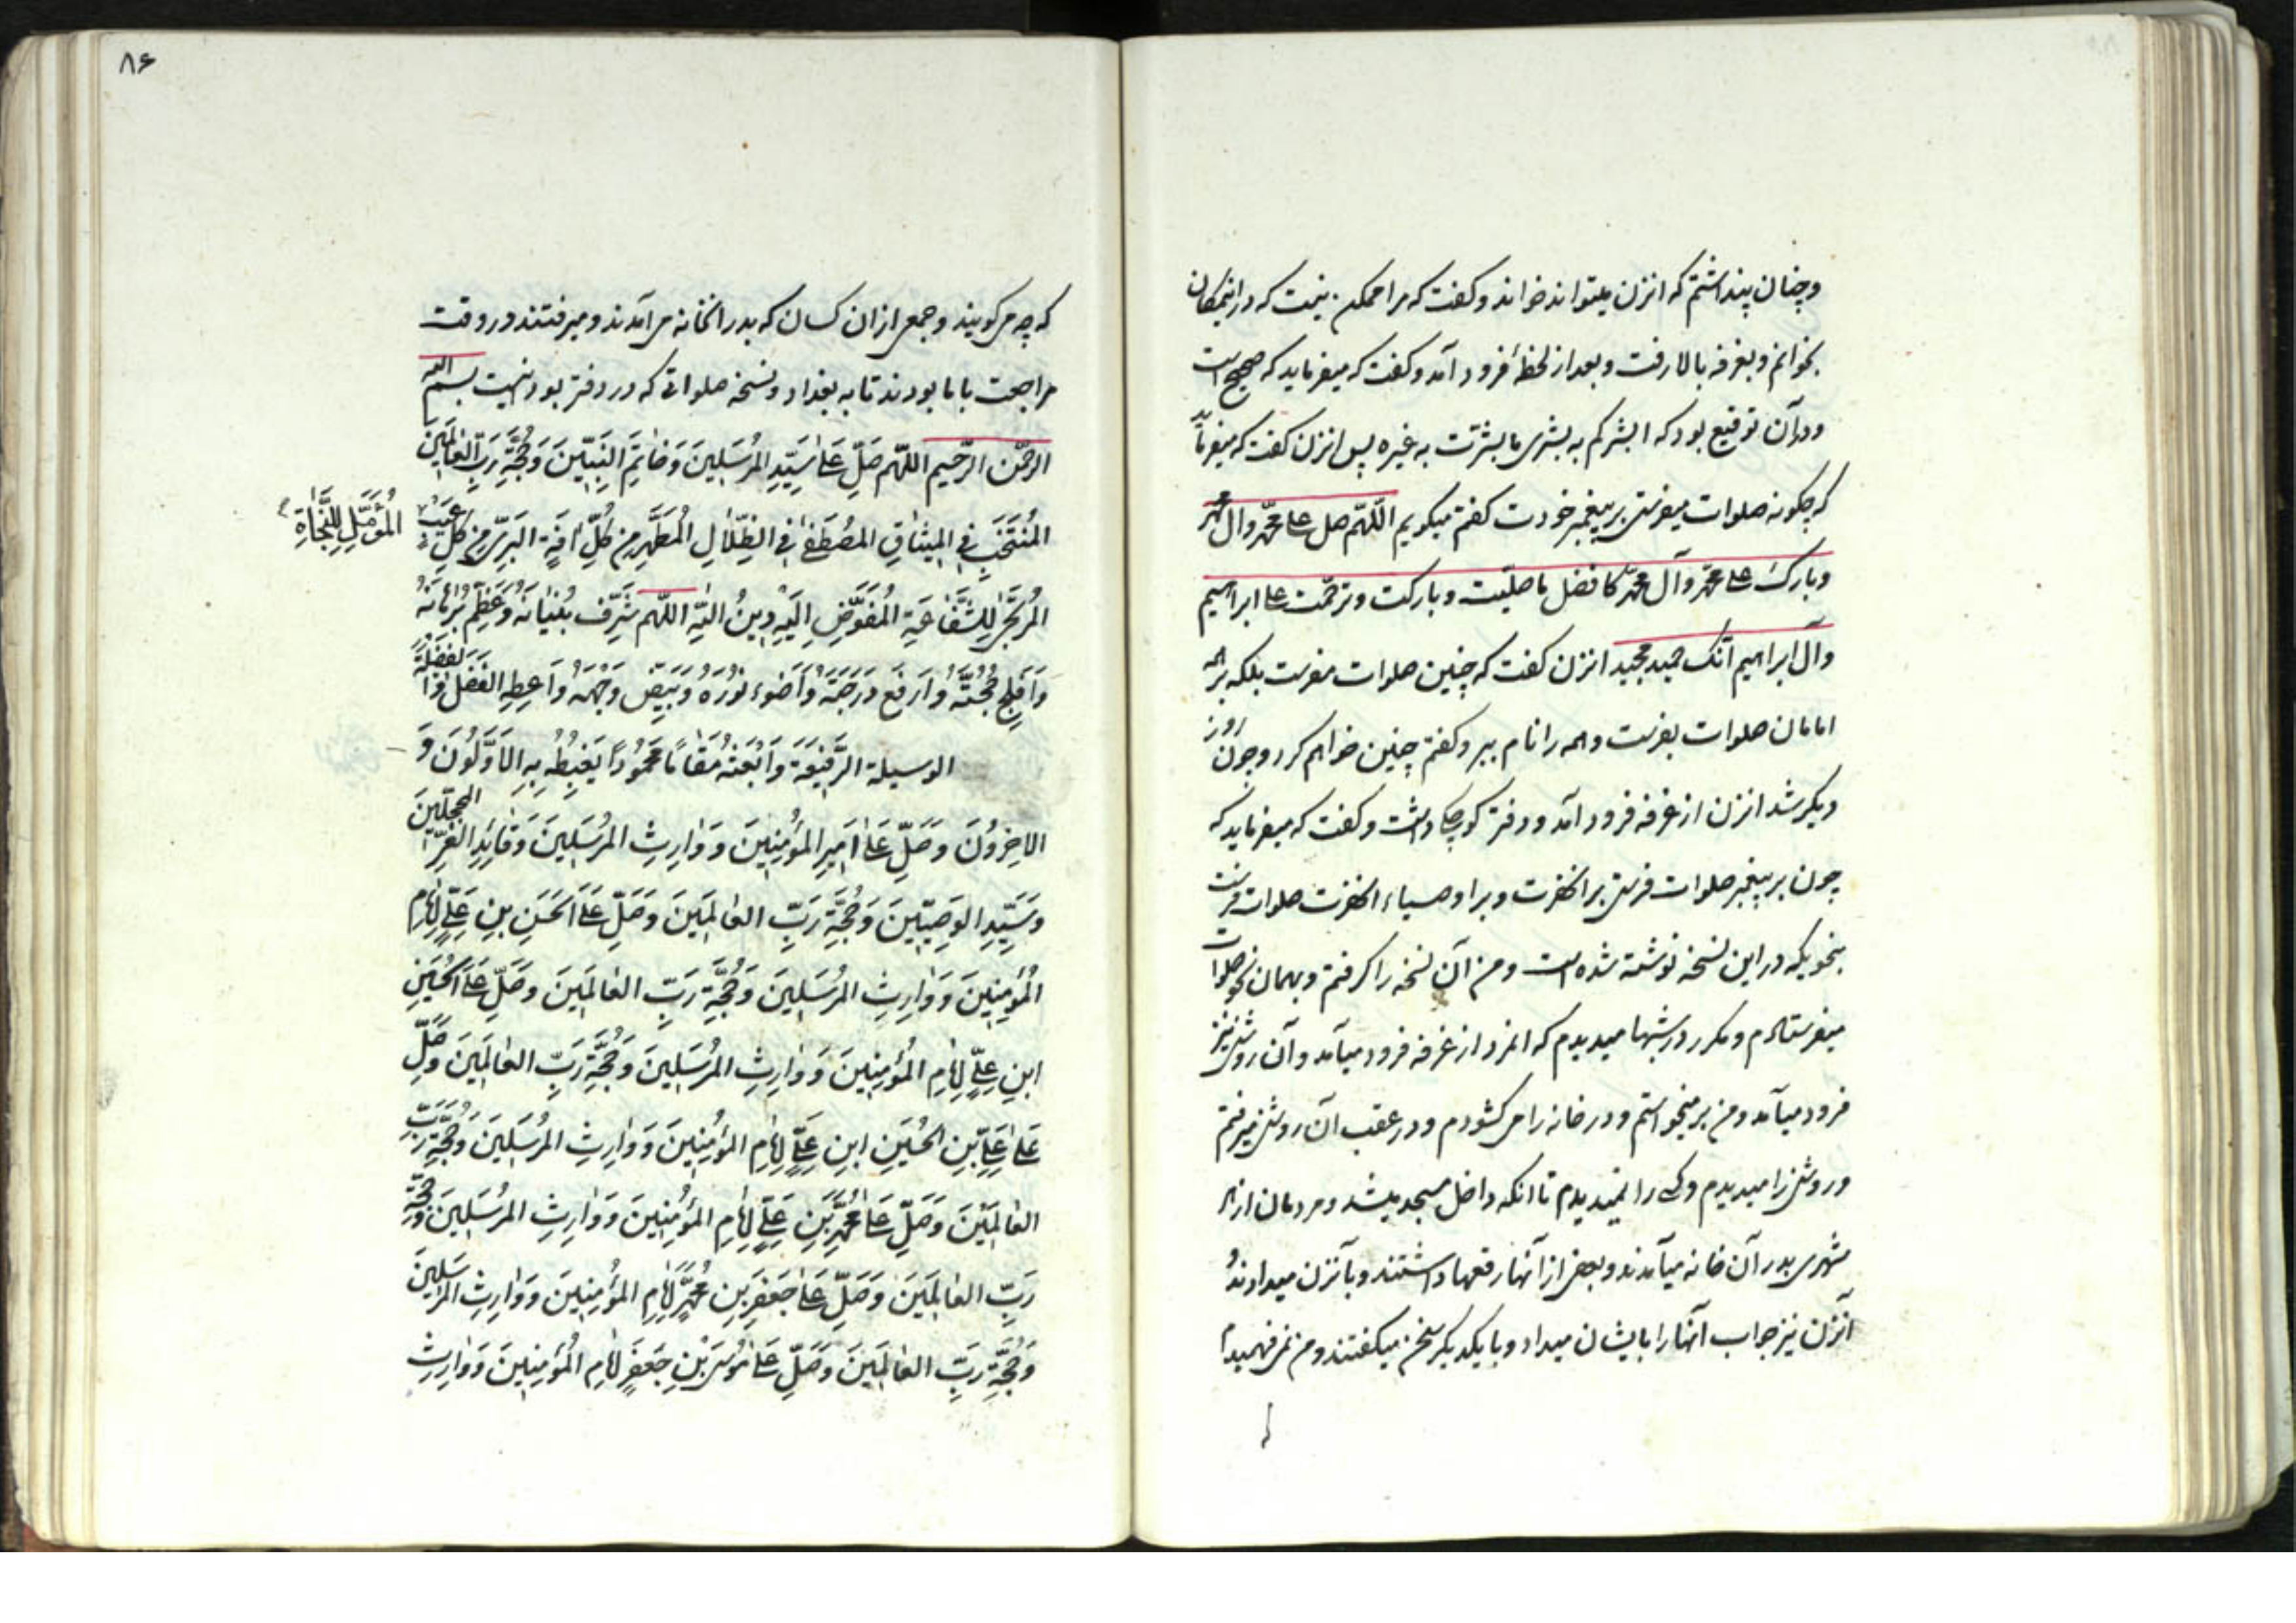 وچنان پنداشتم که انزن میتواند خواند وکفت که مرا ممکن نیست که در اینمکان
بخوانم وبغرفه بالا رفت وبعد از لحظهٔ فرود آمد وکفت که میفرماید که صحیح است
ودرآن توقیع بود که ابشرکم به بشری ما بشرت به غیره پس انزن کفت که میفرماید
که چکونه صلوات میفرستی بر پیغمبر خودت کفتم میکویم اللّهم صل علی محمّد وال محمّد
وبارک علی محمّد وآل محمّد کافضل ما صلّیت وبارکت وترحّمت علی ابراهیم
وآل ابراهیم انّک حمید مجید انزن کفت که چنین صلوات مفرست بلکه بر همه
امامان صلوات بفرست وهمه را نام ببر وکفتم چنین خواهم کرد وچون روز
دیکر شد انزن از غرفه فرود آمد ودفتر کوچکی داشت وکفت که میفرماید که
چون بر پیغمبر صلوات فرستی بر انحضرت وبر اوصیاء انحضرت صلوات فرست
بنحویکه در این نسخه نوشته شده است ومن آن نسخه را کرفتم وبهمان نحو صلوات
میفرستادم ومکرر در شبها میدیدم که انمرد از غرفه فرود میآمد وآن روشنی نیز
فرود میآمد ومن بر میخواستم ودر خانه را می کشودم ودر عقب آن روشنی میرفتم
وروشنی را میدیدم وکسی را نمیدیدم تا انکه داخل مسجد میشد ومردمان از هر
شهری بدر آن خانه میآمدند وبعضی از آنها رقعها داشتند وبآنزن میدادند و
آنزن نیز جواب آنها را بایشان میداد وبا یکدیکر سخن میکفتند ومن نمی فهمیدم
۸۶
که چه می کویند وجمعی از ان کسان که بدر انخانه می آمدند ومیرفتند در وقت
مراجعت با ما بودند تا به بغداد ونسخهٔ صلواتی که در دفتر بود اینست بسم الله
الرحمن الرّحیم اللّهم صَلِّ عَلیٰ سَیِّدِ المُرسَلینَ وَخاتَمِ النَّبیّینَ وَحُجَّةِ رَبِّ العالَمینَ
المُنتَجَبِ فی المیثاقِ المُصطَفیٰ فی الظِّلالِ المُطَهَّرِ مِن کُلِّ افَةٍ البَریِّ مِن کُلِّ عَیبٍ
المُؤَمَّلِ لِلنَّجاةِ
المُرتَجیٰ لِلشَّفاعَةِ المُفَوَّضِ اِلَیهِ دینُ اللّهِ اللّهم شَرِّف بُنیانَهُ وَعَظِّم بُرهانَهُ
وَاَفلِج حُجَّتَهُ وَارفَع دَرَجَتَهُ وَاَضوِء نُورَهُ وَبَیِّض وَجهَهُ وَاَعطِهِ الفَضلَ وَالفَضیلَةَ
الوسیلة الرَّفیعَةَ وَابعَثهُ مَقاماً مَحموداً یَغبِطُهُ بِهِ الاَوَّلُونَ وَ
الاخِرُونَ وَصَلِّ عَلیٰ اَمیرِ المُؤمِنینَ وَوارِثِ المُرسَلینَ وَقائِدِ الغُرِّ المُحَجَّلینَ
وَسَیِّدِ الوَصِیّینَ وَحُجَّةِ رَبِّ العالَمینَ وَصَلِّ عَلَی الحَسَنِ بنِ عَلِیٍّ اِمامِ
المُؤمِنینَ وَوارِثِ المُرسَلینَ وَحُجَّةِ رَبِّ العالَمینَ وَصَلِّ عَلَی الحُسَینِ
ابنِ عَلِیٍّ اِمامِ المُؤمِنینَ وَوارِثِ المُرسَلینَ وَحُجَّةِ رَبِّ العالَمینَ وَصَلِّ
عَلیٰ عَلِیِّ بنِ الحُسَینِ ابنِ عَلِیٍّ اِمامِ المُؤمِنینَ وَوارِثِ المُرسَلینَ وَحُجَّةِ رَبِّ
العالَمینَ وَصَلِّ عَلیٰ مُحَمَّدِ بنِ عَلِیٍّ اِمامِ المُؤمِنینَ وَوارِثِ المُرسَلینَ وَحُجَّةِ
رَبِّ العالَمینَ وَصَلِّ عَلیٰ جَعفَرِ بنِ مُحَمَّدٍ اِمامِ المُؤمِنینَ وَوارِثِ المُرسَلینَ
وَحُجَّةِ رَبِّ العالَمینَ وَصَلِّ عَلیٰ مُوسَی بنِ جَعفَرٍ اِمامِ المُؤمِنینَ وَوارِثِ